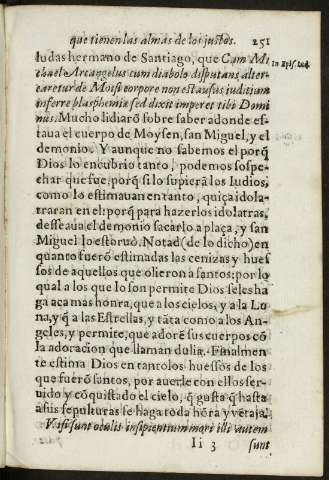 que tienen las almas de los justos. 251
Iudas hermano de Santiago, que Cum Mi
chael Arcangelus cum diabolo disputans, alter
caretur de Moisi corpore non est ausus iuditium
inferre plasphemiæ sed dixit imperet tibi Domi
nus. Mucho lidiarõ sobre saber adonde es-
taua el cuerpo de Moysen, san Miguel, y el
demonio. Y aunque no sabemos el porq̃
Dios lo encubrio tanto, podemos sospe-
char que fue, porq̃ si lo supierã los Iudios,
como lo estimauan en tanto, quiça idola-
traran en el: porq̃ para hazerlos idolatras,
desseaua el demonio sacarlo a plaça, y san
Miguel lo estoruò. Notad (de lo dicho) en
quanto fuerõ estimadas las cenizas y hues
sos de aquellos que olieron a santos: por lo
qual a los que lo son permite Dios se les ha
ga aca mas honra, que a los cielos, y a la Lu
na, y q̃ a las Estrellas, y tãta como a los An-
geles, y permite, que adorẽ sus cuerpos cõ
la adoracion que llaman dulia. Finalmen
te estima Dios en tanto los huessos de los
que fuerõ santos, por auerle con ellos ser-
uido y cõquistado el cielo, q̃ gusta q̃ hasta
a sus sepulturas se haga toda hõra y vẽtaja.
Visi sunt oculis insipientium mori illi autem
Ii 3 sunt
In Epist. Iud.